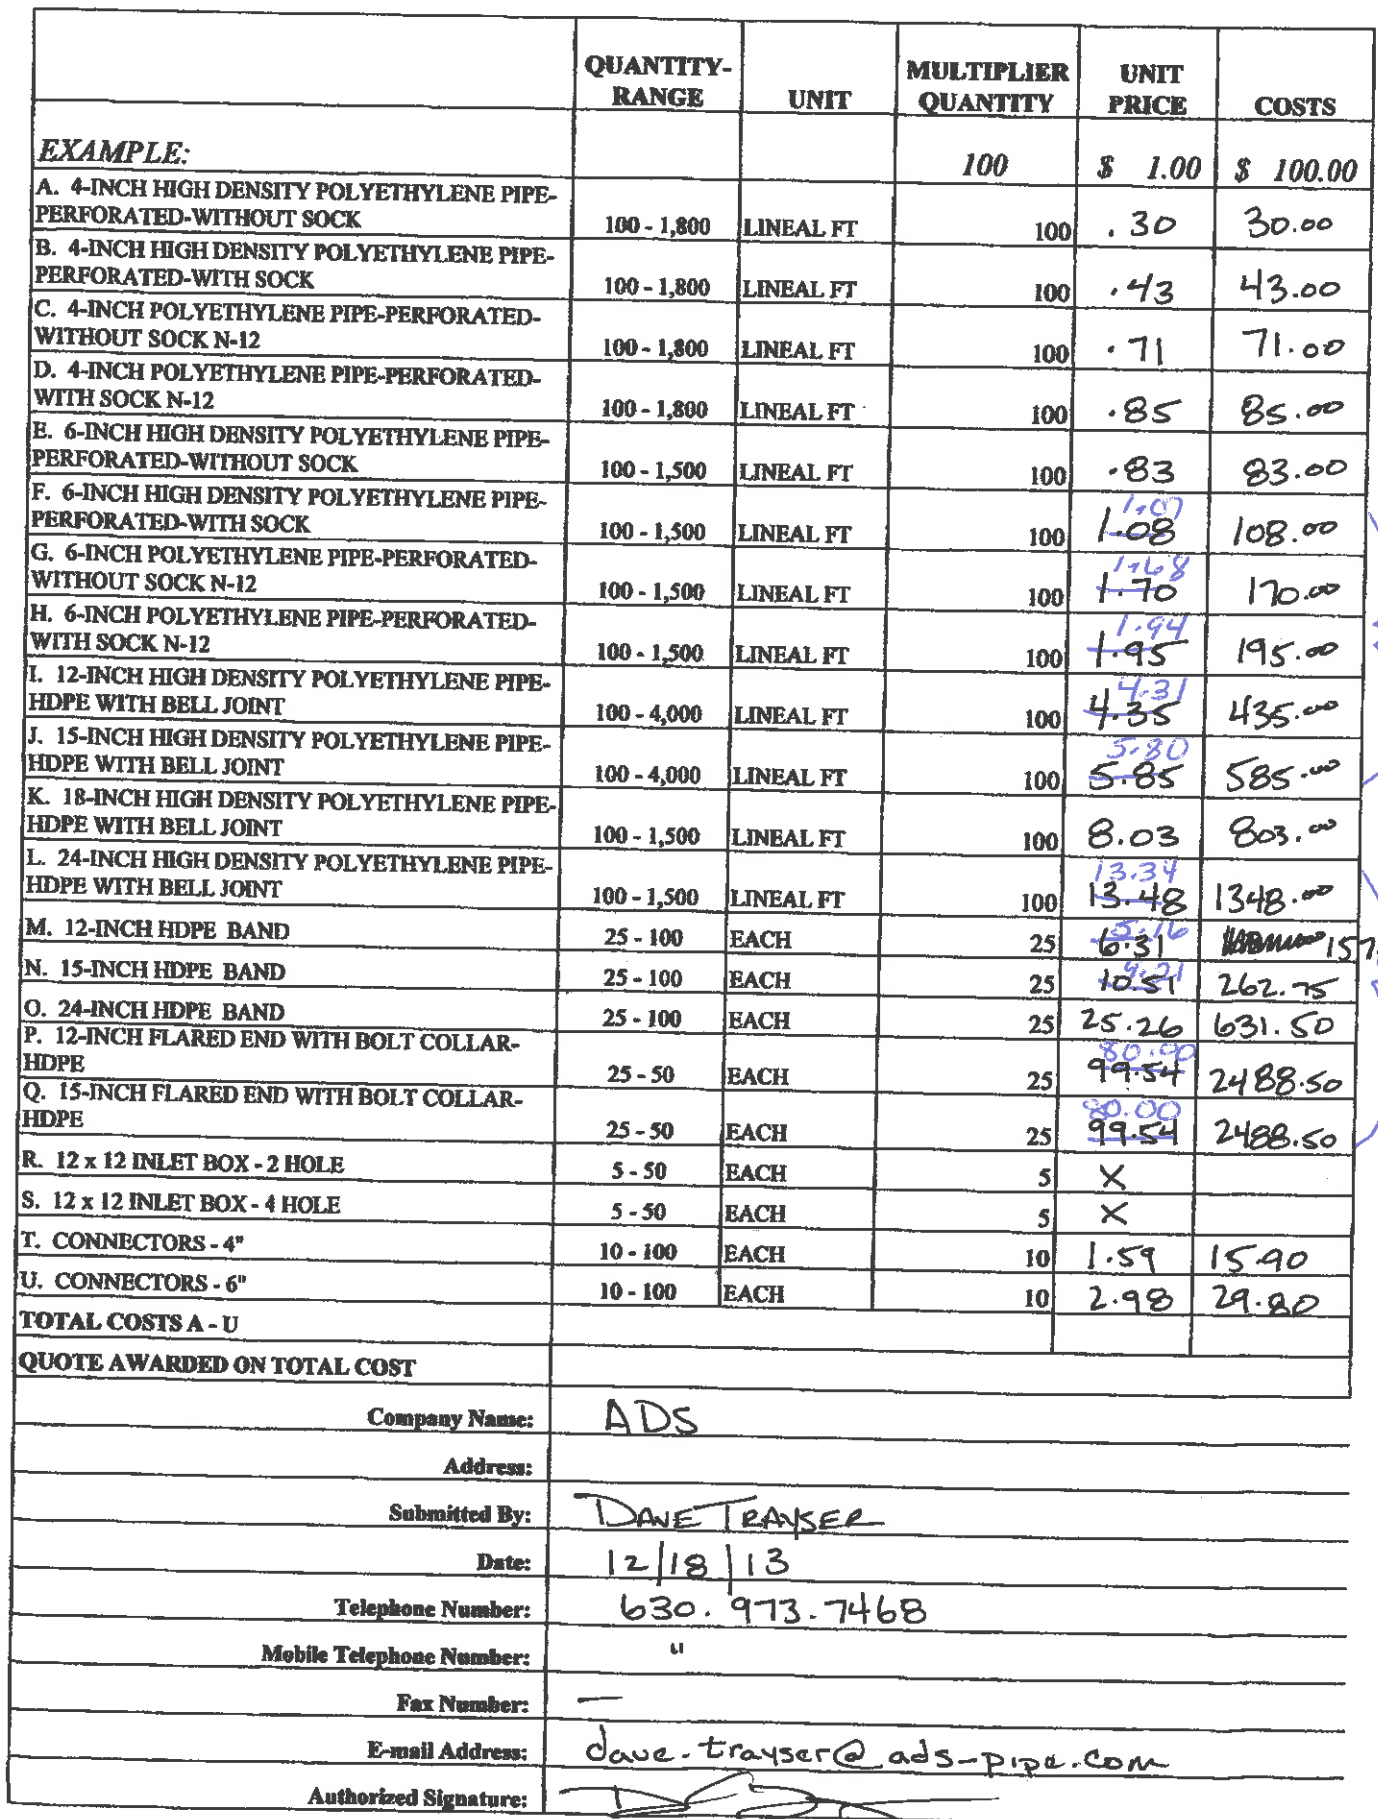 QUANTITY-RANGE UNIT MULTIPLIER QUANTITY UNIT PRICE COSTS
EXAMPLE: 100 $ 1.00 $ 100.00
A. 4-INCH HIGH DENSITY POLYETHYLENE PIPE-
PERFORATED-WITHOUT SOCK 100 - 1,800 LINEAL FT 100 .30 30.00
B. 4-INCH HIGH DENSITY POLYETHYLENE PIPE-
PERFORATED-WITH SOCK 100 - 1,800 LINEAL FT 100 .43 43.00
C. 4-INCH POLYETHYLENE PIPE-PERFORATED-
WITHOUT SOCK N-12 100 - 1,800 LINEAL FT 100 .71 71.00
D. 4-INCH POLYETHYLENE PIPE-PERFORATED-
WITH SOCK N-12 100 - 1,800 LINEAL FT 100 .85 85.00
E. 6-INCH HIGH DENSITY POLYETHYLENE PIPE-
PERFORATED-WITHOUT SOCK 100 - 1,500 LINEAL FT 100 .83 83.00
F. 6-INCH HIGH DENSITY POLYETHYLENE PIPE- 1.07
PERFORATED-WITH SOCK 100 - 1,500 LINEAL FT 100 1.08 108.00
G. 6-INCH POLYETHYLENE PIPE-PERFORATED- 1.68
WITHOUT SOCK N-12 100 - 1,500 LINEAL FT 100 1.70 170.00
H. 6-INCH POLYETHYLENE PIPE-PERFORATED- 1.94
WITH SOCK N-12 100 - 1,500 LINEAL FT 100 1.95 195.00
I. 12-INCH HIGH DENSITY POLYETHYLENE PIPE- 4.31
HDPE WITH BELL JOINT 100 - 4,000 LINEAL FT 100 4.35 435.00
J. 15-INCH HIGH DENSITY POLYETHYLENE PIPE- 5.80
HDPE WITH BELL JOINT 100 - 4,000 LINEAL FT 100 5.85 585.00
K. 18-INCH HIGH DENSITY POLYETHYLENE PIPE-
HDPE WITH BELL JOINT 100 - 1,500 LINEAL FT 100 8.03 803.00
L. 24-INCH HIGH DENSITY POLYETHYLENE PIPE- 13.34
HDPE WITH BELL JOINT 100 - 1,500 LINEAL FT 100 13.48 1348.00
5.16
M. 12-INCH HDPE BAND 25 - 100 EACH 25 6.31 157.
9.21
N. 15-INCH HDPE BAND 25 - 100 EACH 25 10.51 262.75
O. 24-INCH HDPE BAND 25 - 100 EACH 25 25.26 631.50
P. 12-INCH FLARED END WITH BOLT COLLAR- 80.00
HDPE 25 - 50 EACH 25 99.54 2488.50
Q. 15-INCH FLARED END WITH BOLT COLLAR- 80.00
HDPE 25 - 50 EACH 25 99.54 2488.50
R. 12 x 12 INLET BOX - 2 HOLE 5 - 50 EACH 5 X
S. 12 x 12 INLET BOX - 4 HOLE 5 - 50 EACH 5 X
T. CONNECTORS - 4" 10 - 100 EACH 10 1.59 15.90
U. CONNECTORS - 6" 10 - 100 EACH 10 2.98 29.80
TOTAL COSTS A - U
QUOTE AWARDED ON TOTAL COST
Company Name: ADS
Address:
Submitted By: DAVE TRAYSER
Date: 12/18/13
Telephone Number: 630.973.7468
Mobile Telephone Number: "
Fax Number: —
E-mail Address: dave.trayser@ads-pipe.com
Authorized Signature: